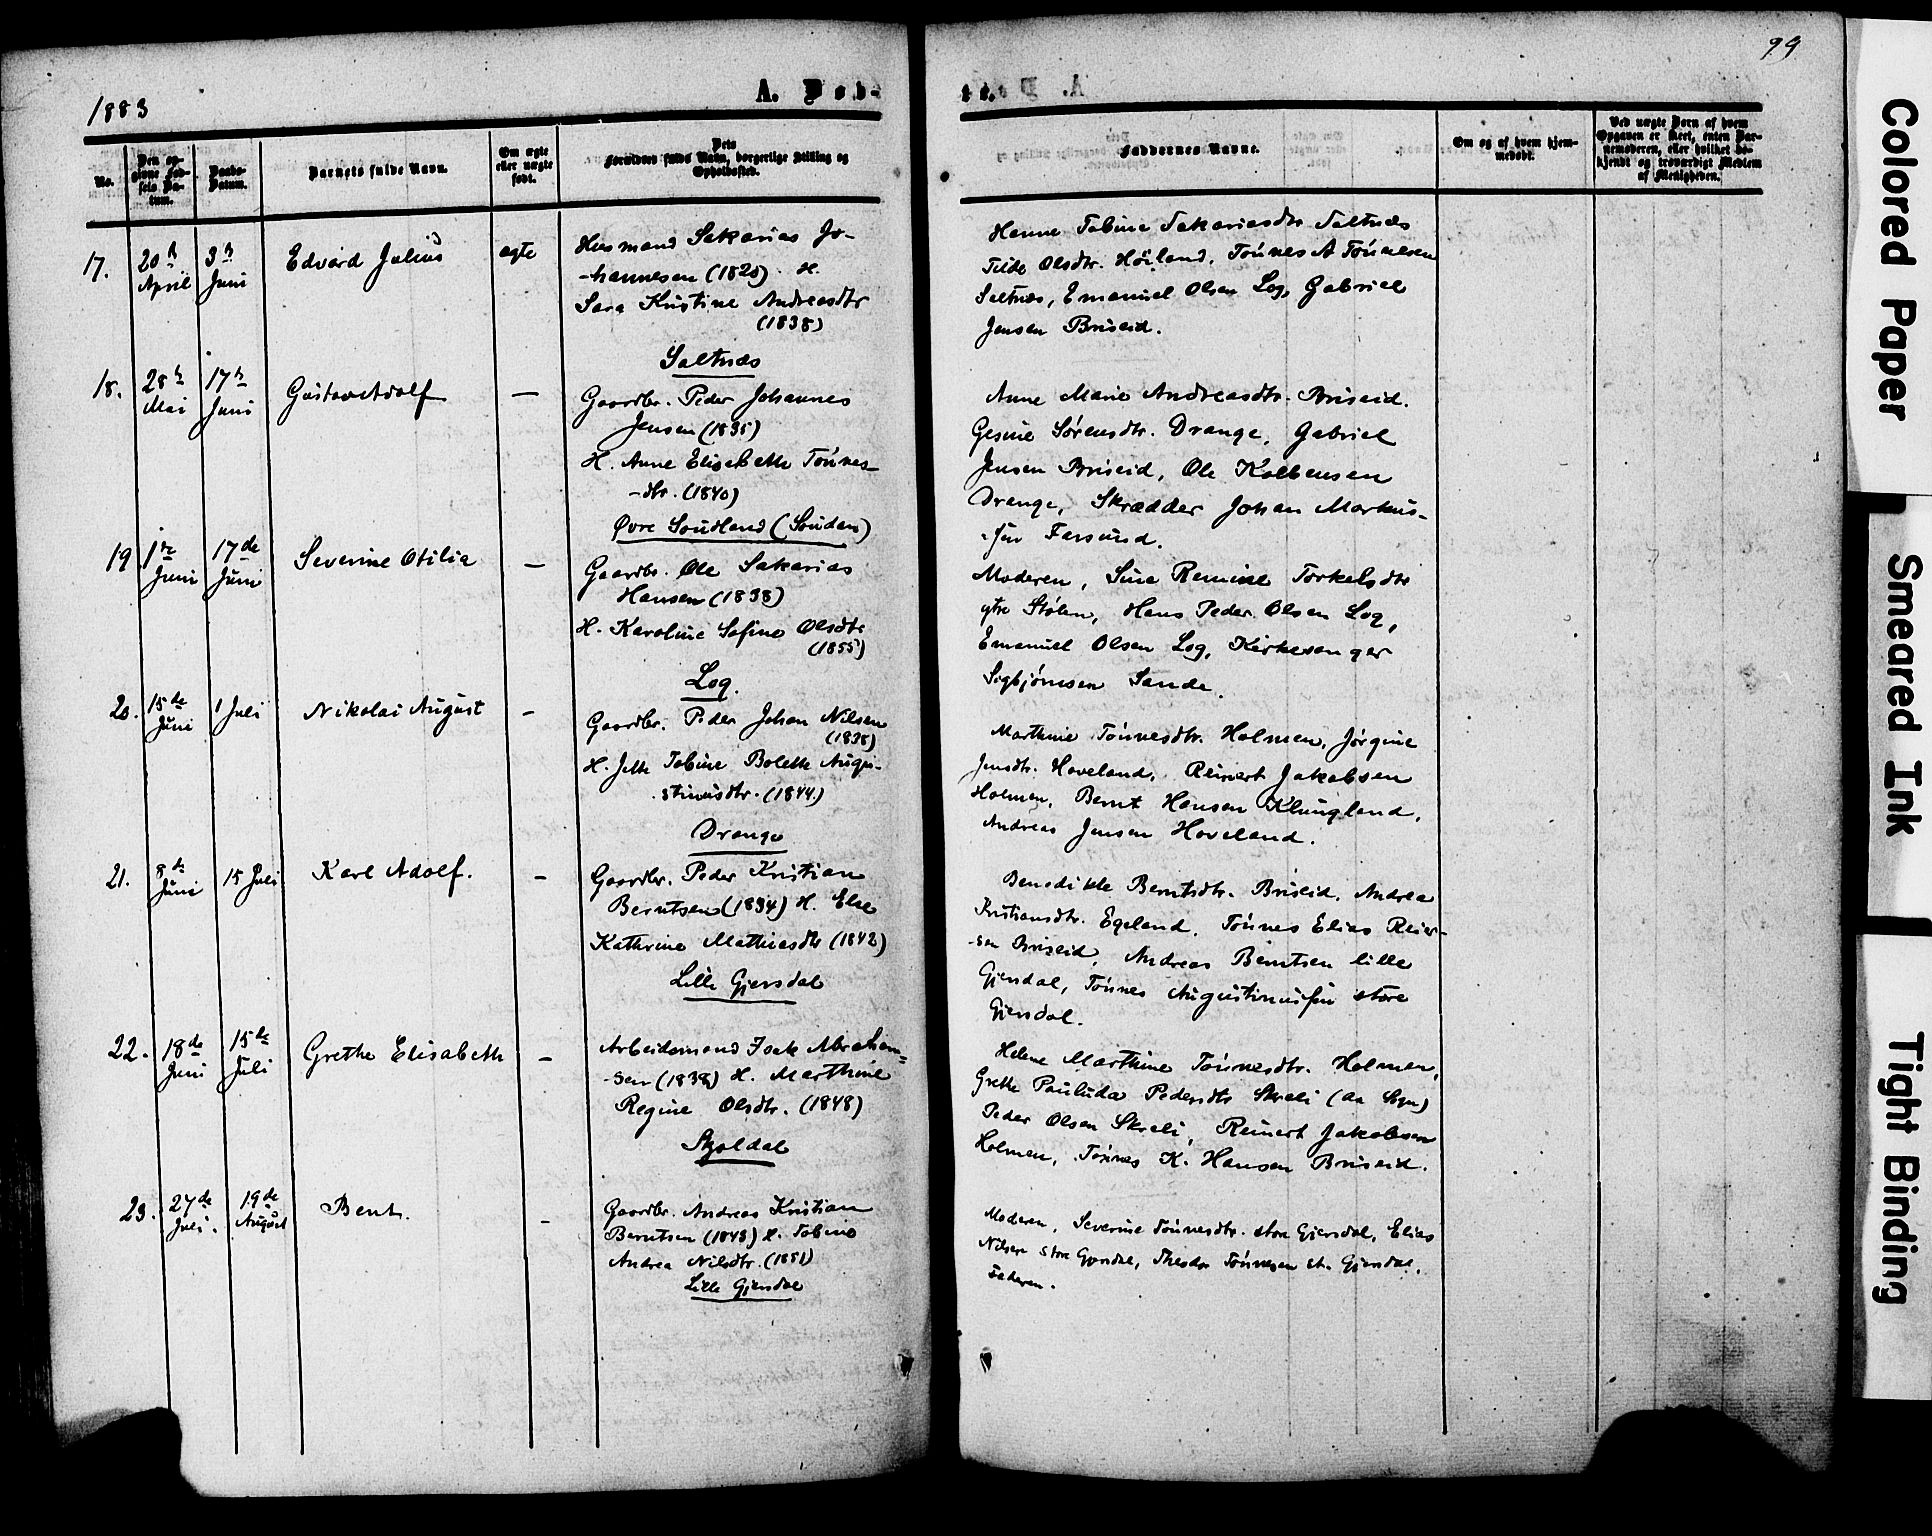 1883
A. Døb-
No.
Den op-
givne Fød-
sels Da-
tum.
Daabs-
Datum.
Barnets fulde Navn.
Om ægte
eller uægte
født.
Dets
Forældres fulde Navn, borgerlige Stilling og
Opholdssted.
17.
20h
April
3h
Juni
Edvard Julius
ægte
Husmand Sakarias Jo-
-hannesen (1828). H.
Sara Kristine Andreasdtr
(1838)
Saltnæs
18.
28h
Mai
17h
Juni
Gustav Adolf
—
Gaardbr. Peder Johannes
Jensen (1835)
H. Anne Elisabeth Tønnes
-dtr. (1840)
Øvre Sundland (Sundan)
19
1ste
Juni
17de
Juni
Severine Otilia
—
Gaardbr. Ole Sakarias
Hansen (1838)
H. Karoline Sofine Olsdtr
(1855)
Log.
20.
15de
Juni
1 Juli
Nikolai August
-
Gaardbr. Peder Johan Nilsen
(1838)
H. Jette Tobine Bolette Augu-
stinusdtr. (1844)
Drange
21.
8de
Juni
15 Juli
Karl Adolf.
-
Gaardbr. Peder Kristian
Berntsen (1834) H. Else
Kathrine Mathiasdtr (1842)
Lille Gjersdal
22.
18de
Juni
15de
Juli
Grethe Elisabeth
-
Arbeidsmand Isak Abraham=
-sen (1838) H. Marthine
Regine Olsdtr. (1848)
Skjoldal
23.
27de
Juli.
19de
August
Bent.
-
Gaardbr. Andreas Kristian
Berntsen (1848) H. Tobine
Andrea Nilsdtr. (1851)
Lille Gjersdal
99
te.
Faddernes Navne.
Om og af hvem hjem-
medøbt.
Ved uægte Børn af hvem
Opgaven er skeet, enten Bar-
nemoderen, eller hvilket be-
kjendt og troværdigt Medlem
af Menigheden.
Hanne Tobine Sakariasdtr Saltnæs
Tilde Olsdtr. Høiland, Tønnes A Tønnesen
Saltnæs, Emanuel Olsen Log, Gabriel
Jensen Briseid.
Anne Marie Andreasdtr. Briseid.
Gesine Sørensdtr. Drange, Gabriel
Jensen Briseid, Ole Kolbensen
Drange, Skrædder Johan Markus-
sen Farsund.
Moderen, Sine Remine Torkelsdtr
ytre Stølen, Hans Peder Olsen Log,
Emanuel Olsen Log, Kirkesanger
Sigbjørnsen Sande.
Marthine Tønnesdtr. Holmen, Jørgine
Jensdtr. Hoveland, Reinert Jakobsen
Holmen, Bernt Hansen Klungland,
Andreas Jensen Hoveland.
Benedikte Berntsdtr. Briseid, Andrea
Kristiansdtr. Egeland, Tønnes Elias Reier-
-sen Briseid, Andreas Berntsen lille
Gjersdal, Tønnes Augustinussen store
Gjersdal.
Helene Marthine Tønnesdtr. Holmen,
Grethe Paulida Pedersdtr Skreli
Peder Olsen Skreli, Reinert Jakobsen
Holmen, Tønnes K. Hansen Briseid.
Moderen, Severine Tønnesdtr. store Gjersdal, Elias
Nilsen store Gjersdal, Theodor Tønnesen st. Gjersdal,
Faderen.
Colored Paper
Smeared Ink
Tight Binding